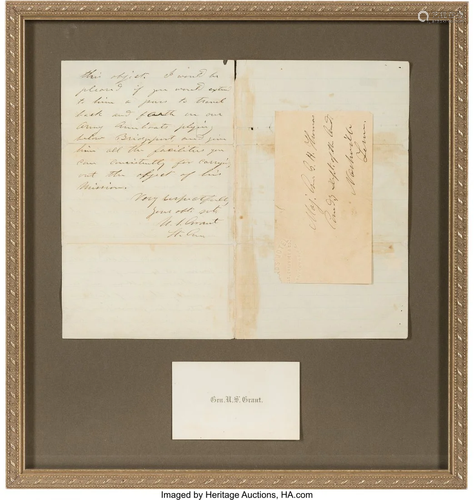 this object. I would be
pleased if you would extend
to him a pass to travel
back and forth on our
Army Gun boats plying
below Bridgeport and give
him all the facilities you
can consistently for carrying
out the object of his
Mission.
Very respectfully
Your obt. svt.
U. S. Grant
Maj. Gen. G. H. Thomas
Nashville
Tenn
Gen. U. S. Grant.
Imaged by Heritage Auctions, HA.com